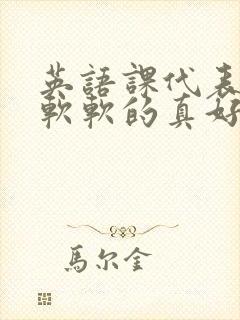 英語課代表
軟軟的真好
馬尔金